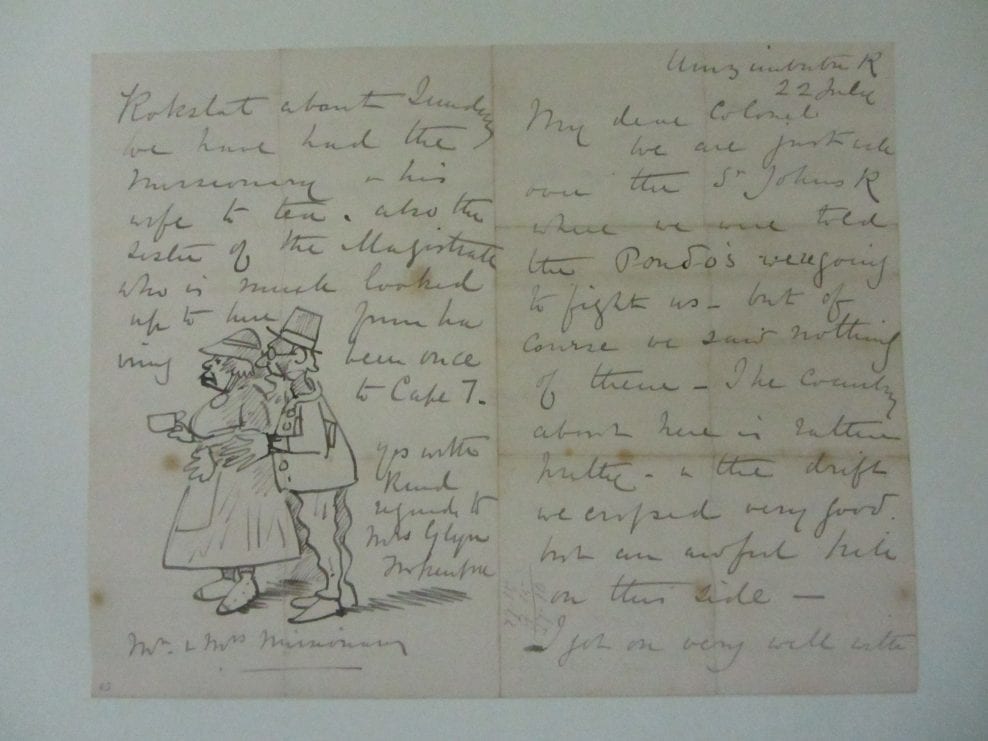 Umzimvubu R
22 July
My dear Colonel
We are just
over the St Johns R
where we were told
the Pondo's were going
to fight us - but of
course we saw nothing
of them - The Country
about here is rather
- & the drift
we crossed very good
but an awful hill
on this side -
I got on very well with
Kokstat about Sunday
we have had the
Missionary & his
wife to tea. also the
sister of the Magistrate
who is much looked
up to here from ha
ving been once
to Cape T.
yrs with
kind
regards to
Mrs Glyn
Mr. & Mrs Missionary